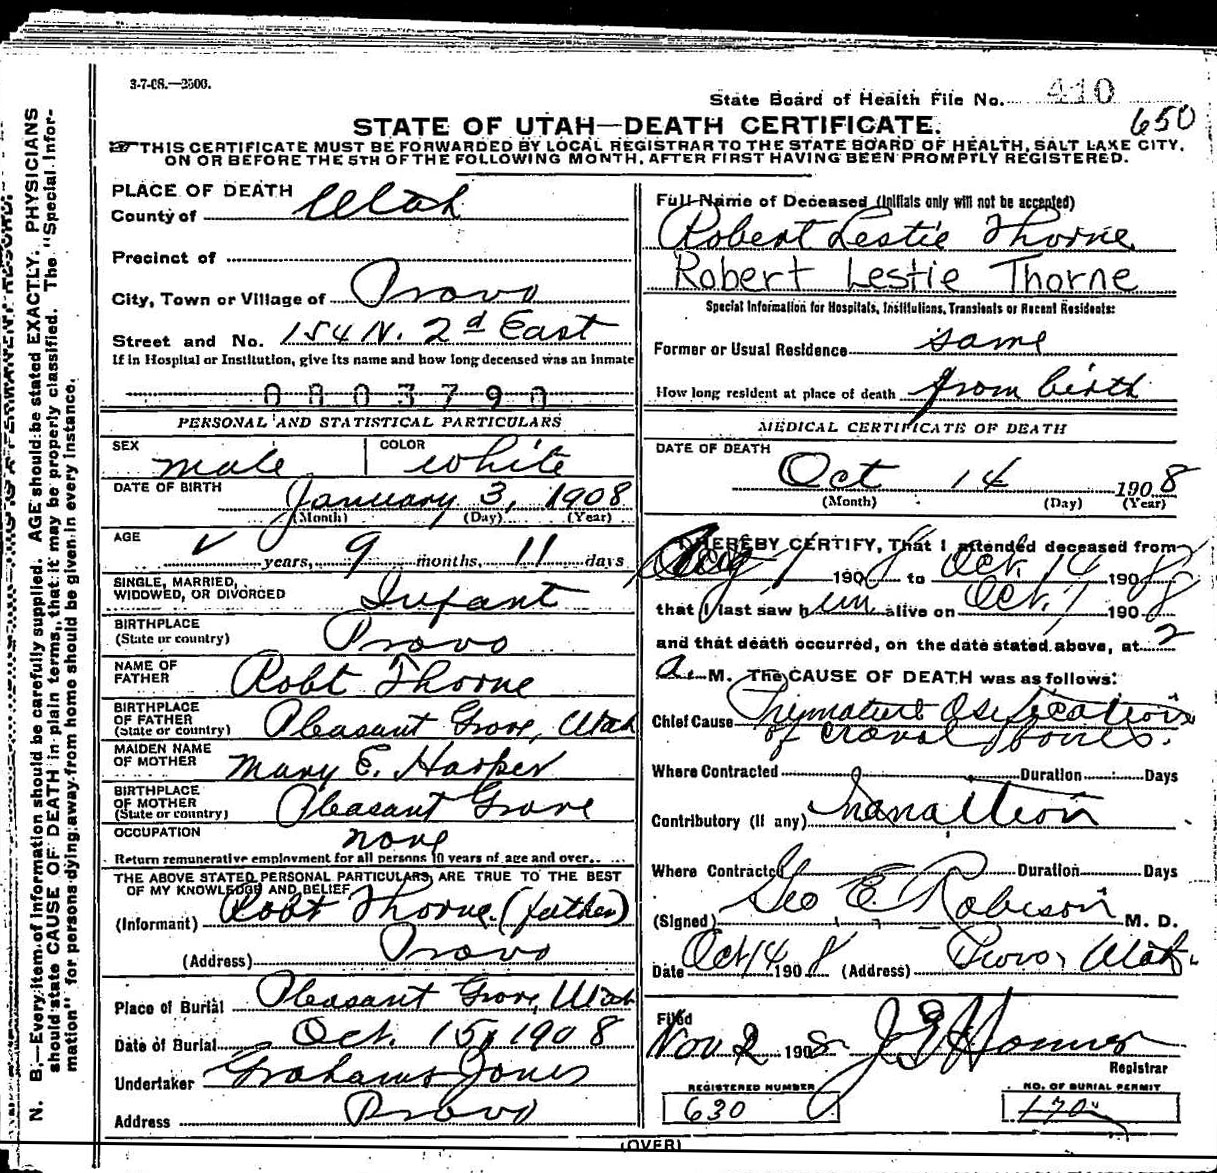 3-7-08.—2500.
State Board of Health File No. 410
650
STATE OF UTAH—DEATH CERTIFICATE.
THIS CERTIFICATE MUST BE FORWARDED BY LOCAL REGISTRAR TO THE STATE BOARD OF HEALTH, SALT LAKE CITY,
ON OR BEFORE THE 5TH OF THE FOLLOWING MONTH, AFTER FIRST HAVING BEEN PROMPTLY REGISTERED.
PLACE OF DEATH
County of Utah
Precinct of
City, Town or Village of Provo
Street and No. 154 N. 2d East
If in Hospital or Institution, give its name and how long deceased was an inmate
0803790
PERSONAL AND STATISTICAL PARTICULARS
SEX male COLOR white
DATE OF BIRTH January 3, 1908
(Month) (Day) (Year)
AGE years, 9 months, 11 days
SINGLE, MARRIED,
WIDOWED, OR DIVORCED Infant
BIRTHPLACE
(State or country) Provo
NAME OF
FATHER Robt Thorne
BIRTHPLACE
OF FATHER
(State or country) Pleasant Grove, Utah
MAIDEN NAME
OF MOTHER Mary E. Harper
BIRTHPLACE
OF MOTHER
(State or country) Pleasant Grove
OCCUPATION none
Return remunerative employment for all persons 10 years of age and over.
THE ABOVE STATED PERSONAL PARTICULARS ARE TRUE TO THE BEST
OF MY KNOWLEDGE AND BELIEF
(Informant) Robt Thorne (father)
(Address) Provo
Place of Burial Pleasant Grove, Utah
Date of Burial Oct. 15, 1908
Undertaker Grahams Jones
Address Provo
Full Name of Deceased (Initials only will not be accepted)
Robert Leslie Thorne
Robert Lestie Thorne
Special Information for Hospitals, Institutions, Transients or Recent Residents:
Former or Usual Residence same
How long resident at place of death from birth
MEDICAL CERTIFICATE OF DEATH
DATE OF DEATH
Oct 14 1908
(Month) (Day) (Year)
I HEREBY CERTIFY, That I attended deceased from
Aug 1 1908 to Oct. 14 1908
that I last saw him alive on Oct. 7 1908
and that death occurred, on the date stated above, at 2
a. M. The CAUSE OF DEATH was as follows:
Chief Cause Primature Osification
of cranal bones.
Where Contracted Duration Days
Contributory (if any) Inanation
Where Contracted Duration Days
(Signed) Geo E. Robison M. D.
Date Oct 14 1908 (Address) Provo, Utah.
Filed
Nov 2 1908 Registrar
REGISTERED NUMBER
630
NO. OF BURIAL PERMIT
170
(OVER)
N. B.—Every item of information should be carefully supplied. AGE should be stated EXACTLY. PHYSICIANS
should state CAUSE OF DEATH in plain terms, that it may be properly classified. The "Special Infor-
mation" for persons dying away from home should be given in every instance.